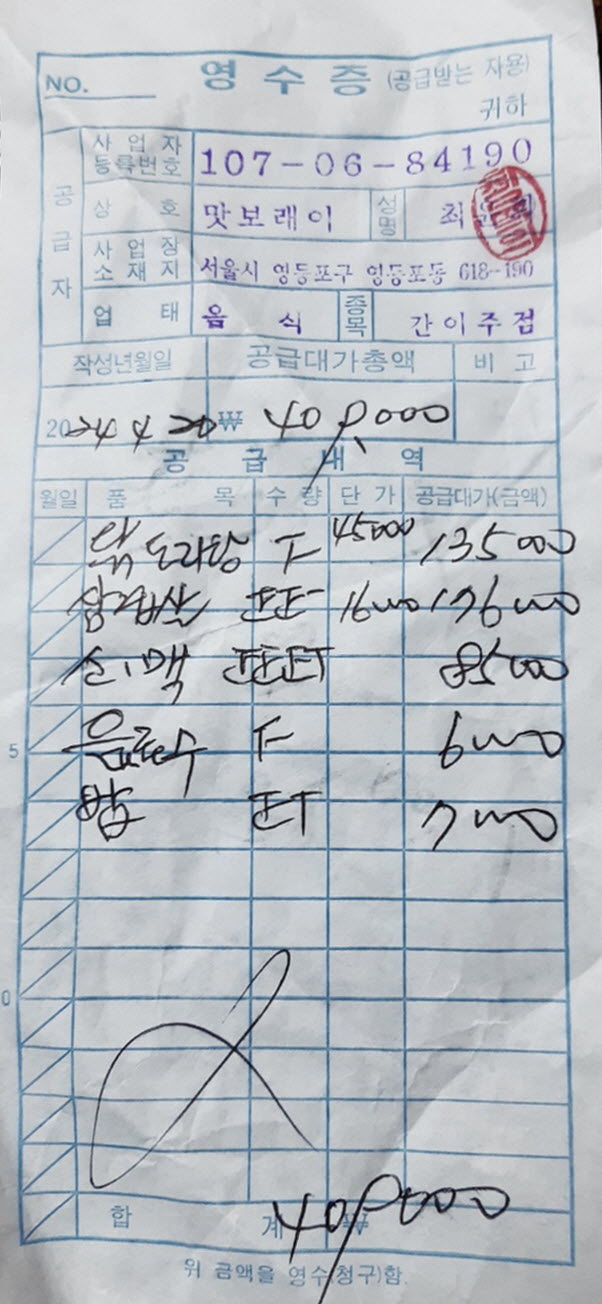 NO. 영수증 (공급받는 자용)
귀하
공급자
사업자등록번호 107-06-84190
상호 맛보래이 성명 최
사업장소재지 서울시 영등포구 영등포동 618-190
업태 음식 종목 간이주점
작성년월일 공급대가총액 비고
2024 4 20 ₩ 409,000
공급내역
월일 품목 수량 단가 공급대가(금액)
닭도리탕 下 45000 135000
삼겹살 正正一 16000 176000
소,맥 正正正T 85000
5 음료수 下 6000
밥 正T 7000
0
합계 ₩ 409,000
위 금액을 영수(청구)함.